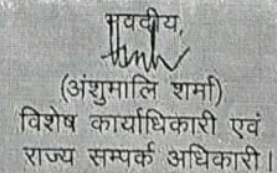 भवदीय,
(अंशुमालि शर्मा)
विशेष कार्याधिकारी एवं
राज्य सम्पर्क अधिकारी।